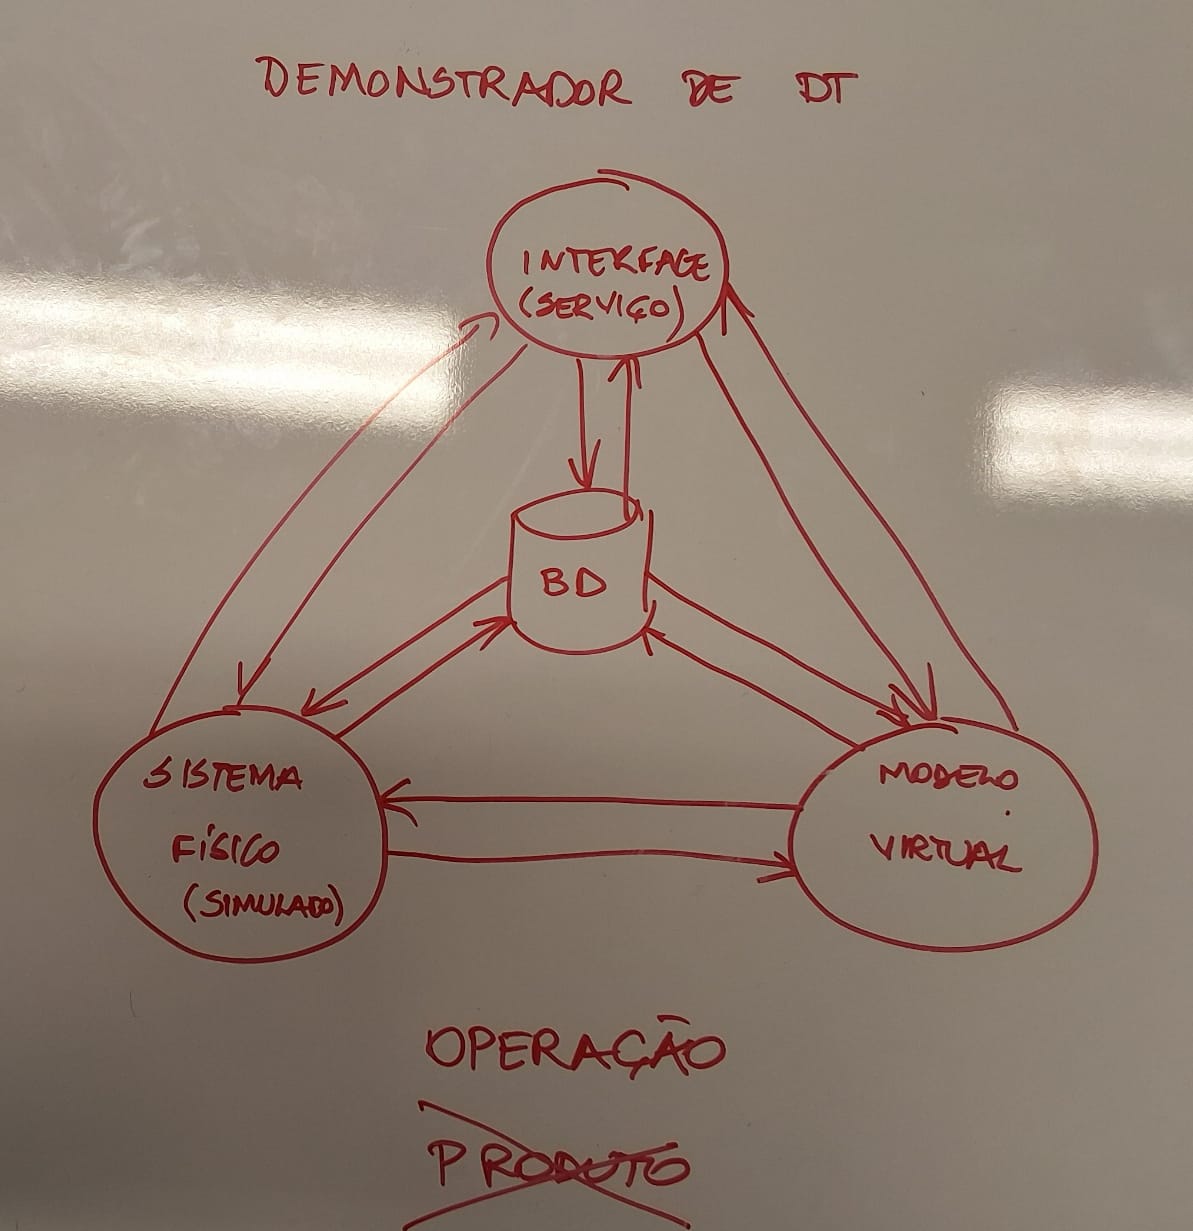 DEMONSTRADOR DE DT
INTERFACE
(SERVIÇO)
BD
SISTEMA
FÍSICO
(SIMULADO)
MODELO
VIRTUAL
OPERAÇÃO
PRODUTO